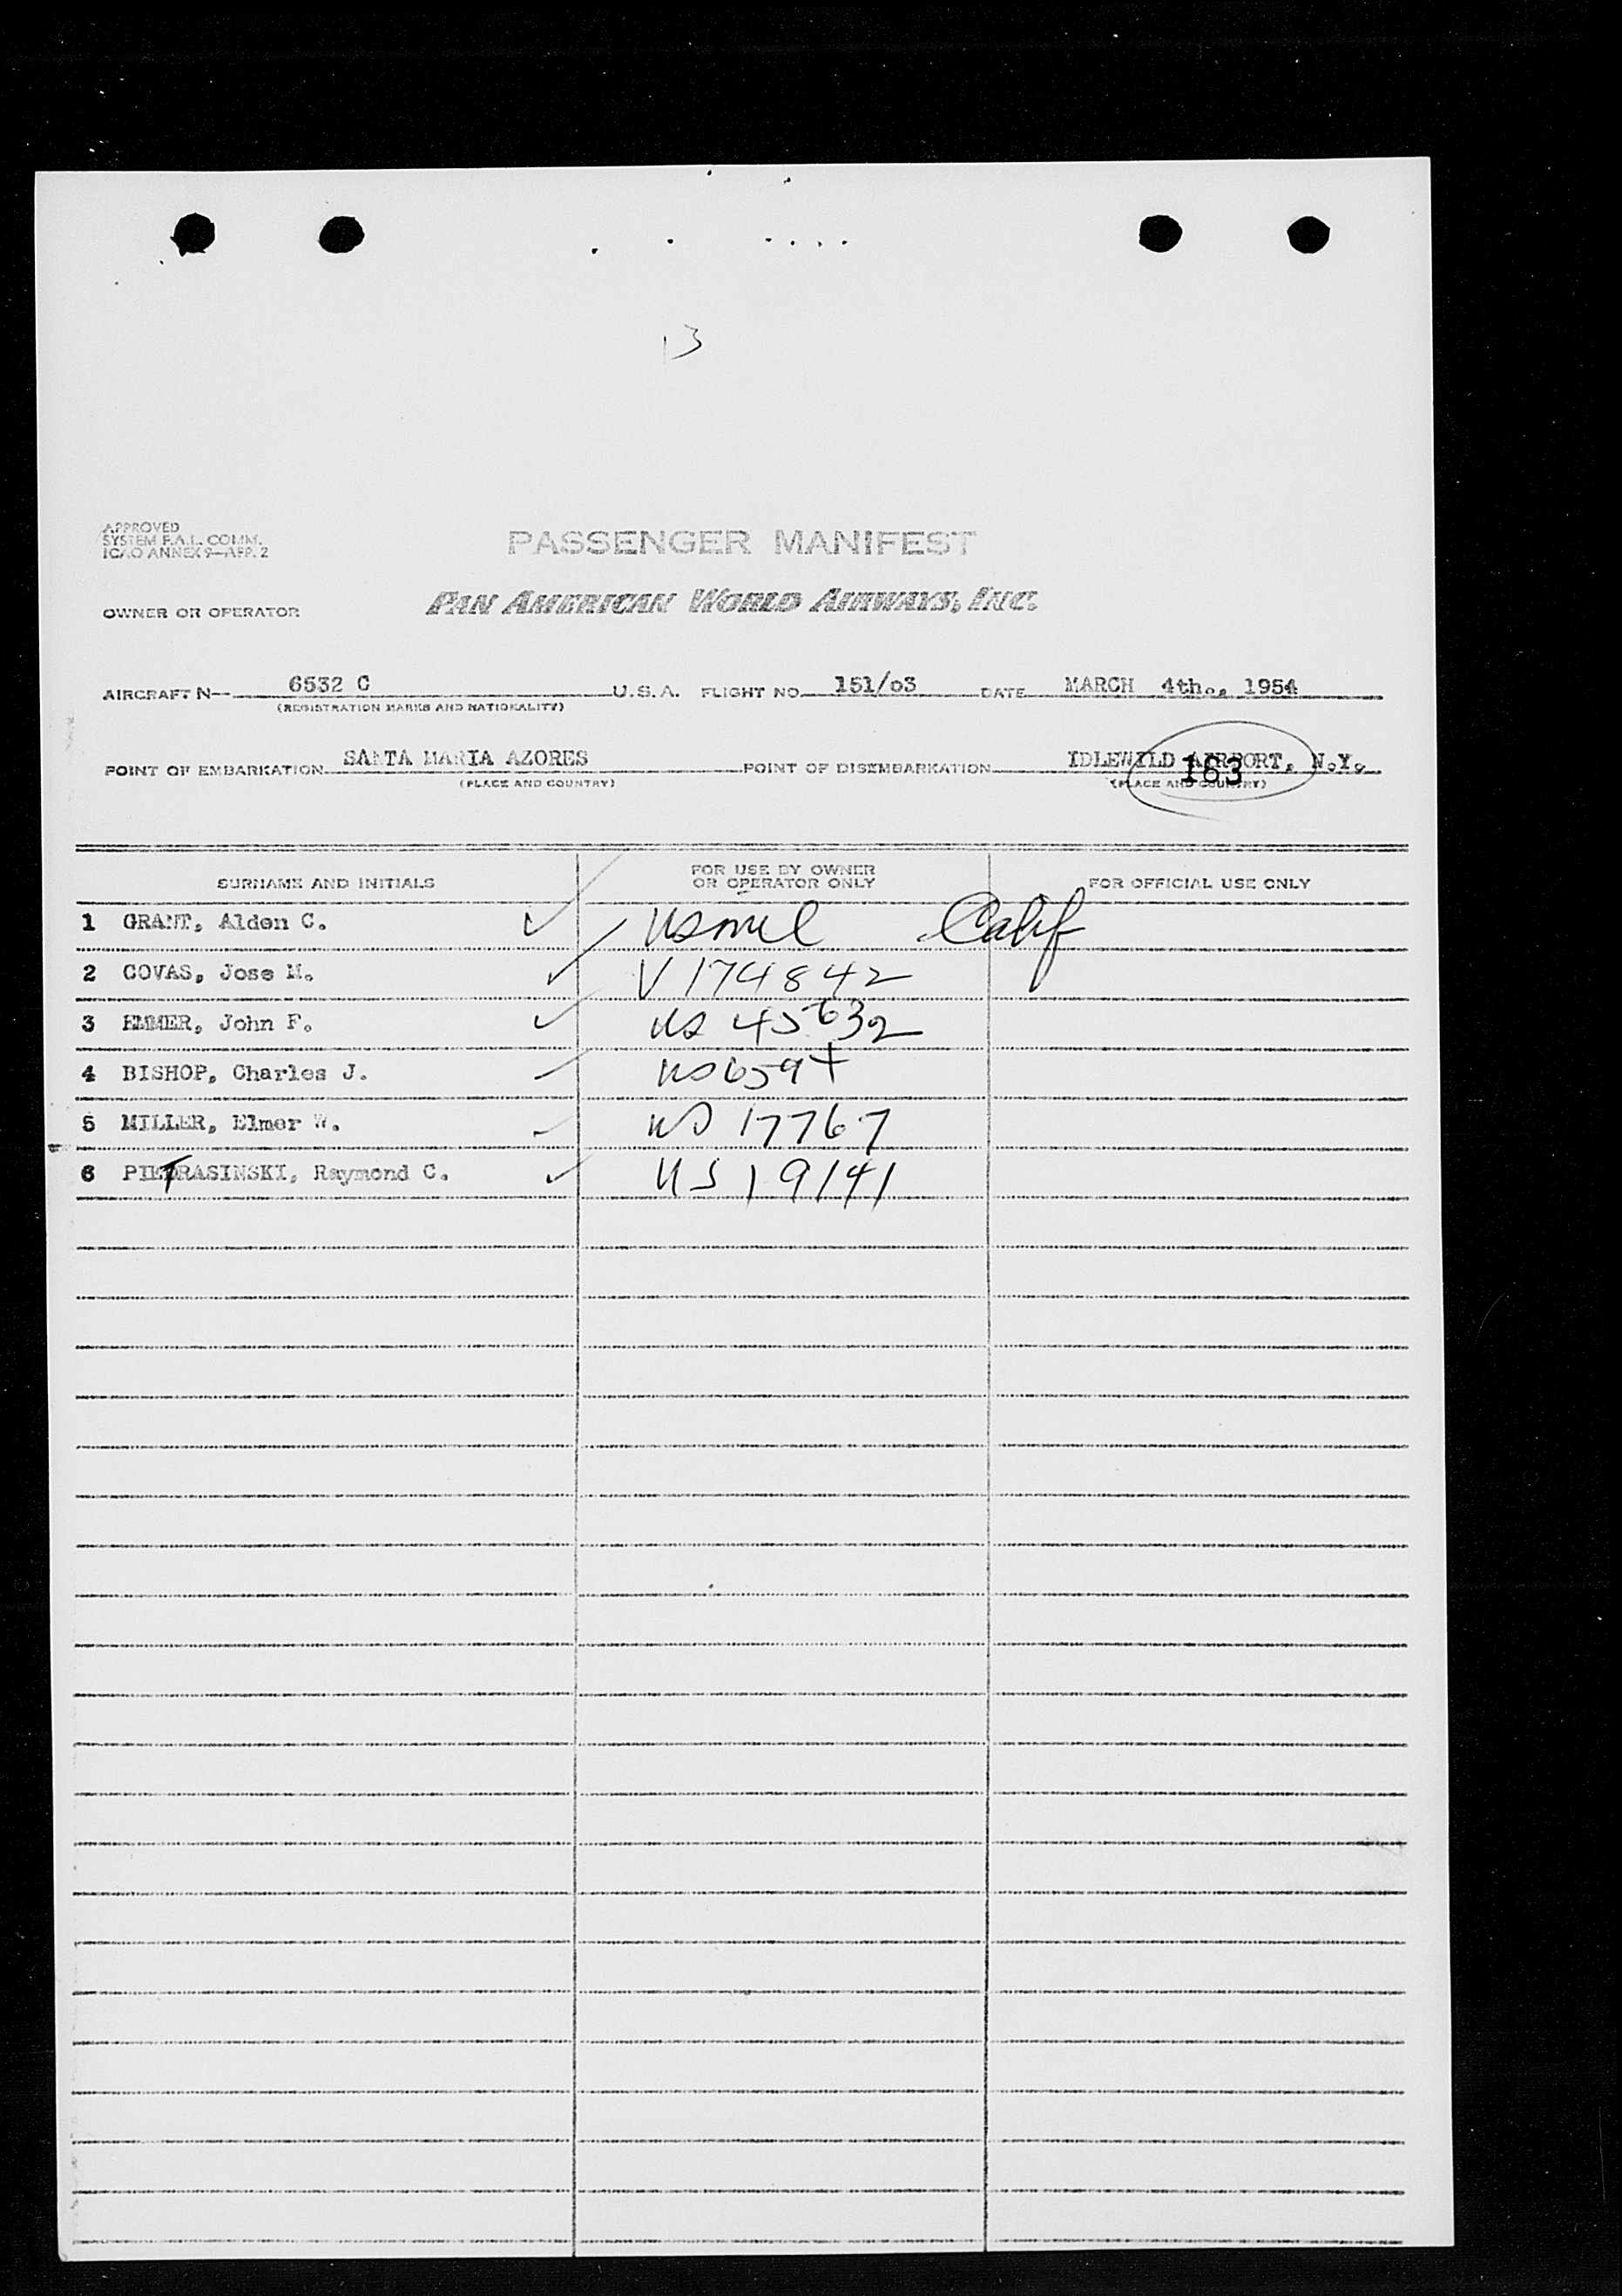 13
APPROVED
SYSTEM F.A.L. COMM.
ICAO ANNEX 9—APP. 2
PASSENGER MANIFEST
OWNER OR OPERATOR PAN AMERICAN WORLD AIRWAYS, INC.
AIRCRAFT N— 6532 C U.S.A. FLIGHT NO. 151/03 DATE MARCH 4th., 1954
(REGISTRATION MARKS AND NATIONALITY)
POINT OF EMBARKATION SANTA MARIA AZORES POINT OF DISEMBARKATION IDLEWILD AIRPORT, N.Y.
(PLACE AND COUNTRY) (PLACE AND COUNTRY)
163
SURNAME AND INITIALS FOR USE BY OWNER OR OPERATOR ONLY FOR OFFICIAL USE ONLY
1 GRANT, Alden C. ✓ US mil Calif
2 COVAS, Jose M. ✓ V 174842
3 EMMER, John F. ✓ US 45632
4 BISHOP, Charles J. ✓ US 659+
5 MILLER, Elmer W. ✓ US 17767
6 PIETRASINSKI, Raymond C. ✓ US 19141